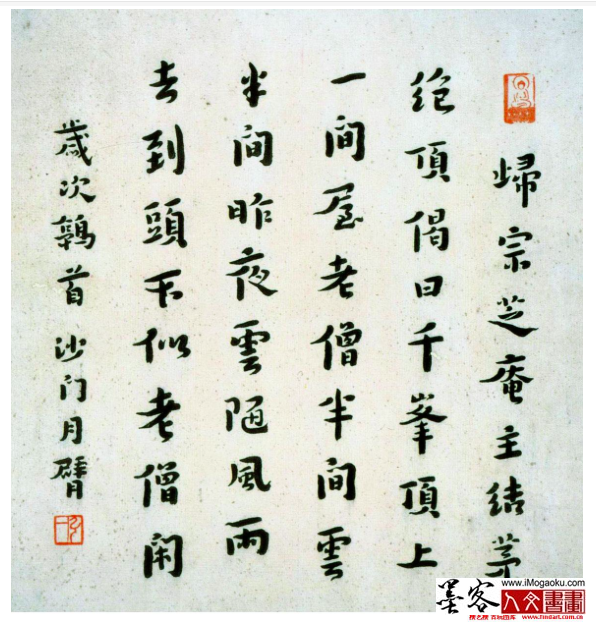 歸宗芝庵主結茅
絶頂偈曰千峯頂上
一間屋老僧半間雲
半間昨夜雲随風雨
去到頭不似老僧閑
歲次鶉首沙门月臂
墨客
www.iMogaoku.com
人文書畫
www.findart.com.cn